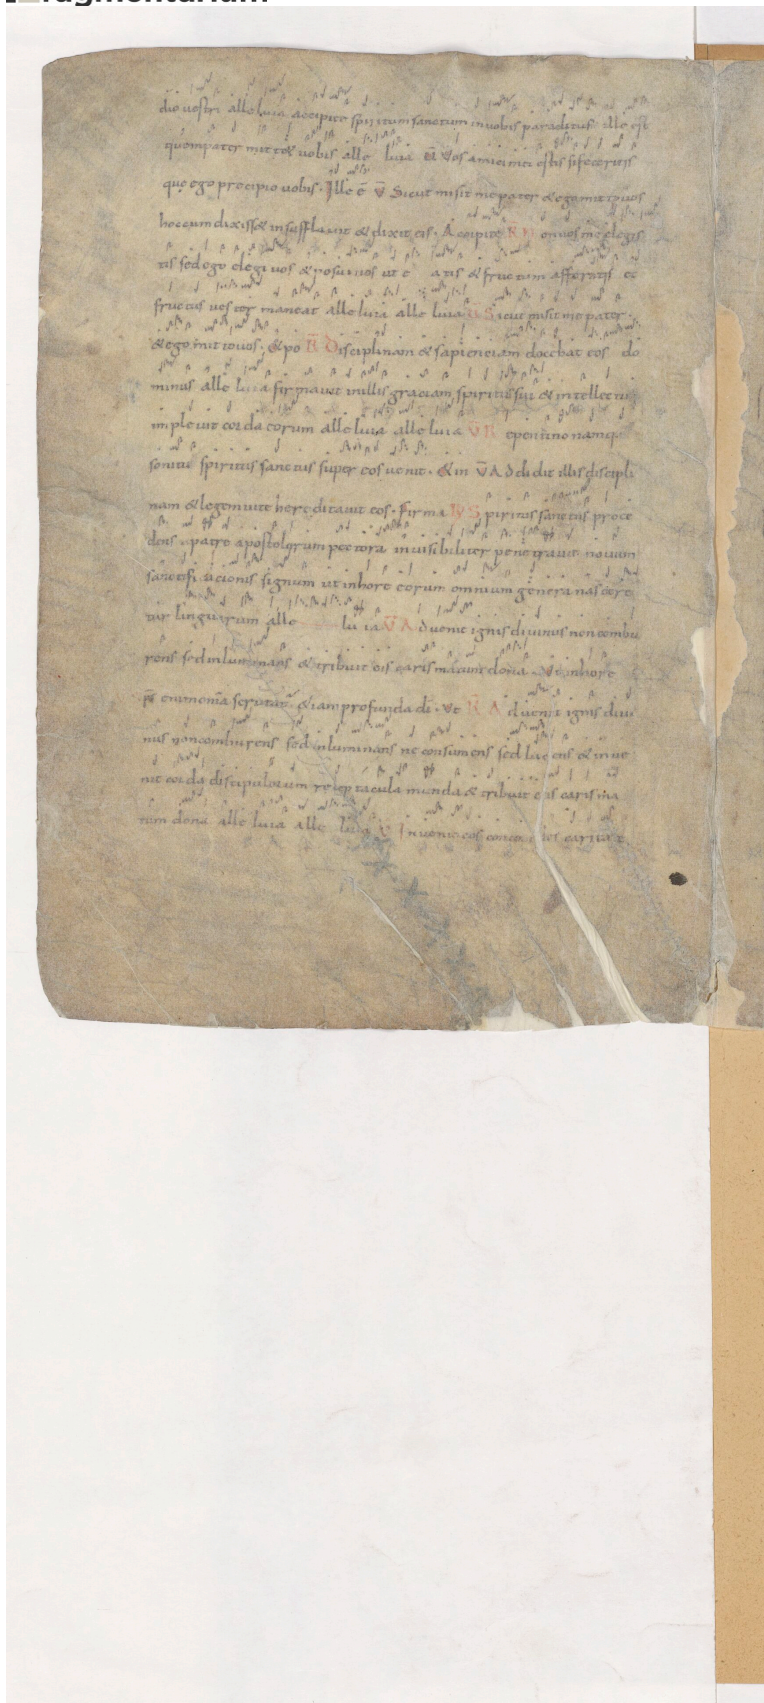 fragmentarium
dio vostri alleluia accipite spiritum sanctum in vobis paraclitus ille est
quem pater mittet vobis alle luia v̄ Vos amici mei estis si feceritis
que ego precipio vobis. Ille ē v̄ Sicut misit me pater & ego mitto vos
hoc cum dixiss& insufflavit & dixit eis. Accipite R̄ Non vos me elegis
tis sed ego elegi vos & posui vos ut e atis & fructum afferatis et
fructus vester maneat alleluia alle luia v̄ Sicut misit me pater.
& ego mitto vos. & po R̄ Disciplinam & sapienciam docebat eos do
minus alle luia firmavit in illis graciam spiritus sui & intellectu
implevit corda eorum alleluia alleluia v̄ Repentino namq.
sonitu spiritus sanctus super eos venit. & in v̄ Addidit illis discipli
nam & legem vite hereditavit eos. firma R̄ Spiritus sanctus proce
dens a patre apostolorum pectora invisibiliter penetravit novum
sanctificacionis signum ut in hore eorum omnium genera nascere
tur linguarum alle lu ia v̄ Advenit ignis divinus non combu
rens sed inluminans & tribuit eis carismatum dona. Ut in hore
eni omnia scrutatur etiam profunda dī. Ut R̄ Advenit ignis divi
nus non comburens sed inluminans ne consumens sed lucens & inve
nit corda discipulorum receptacula munda & tribuit eis carisma
tum dona alle luia alle luia v̄ Invenit eos concordes caritate